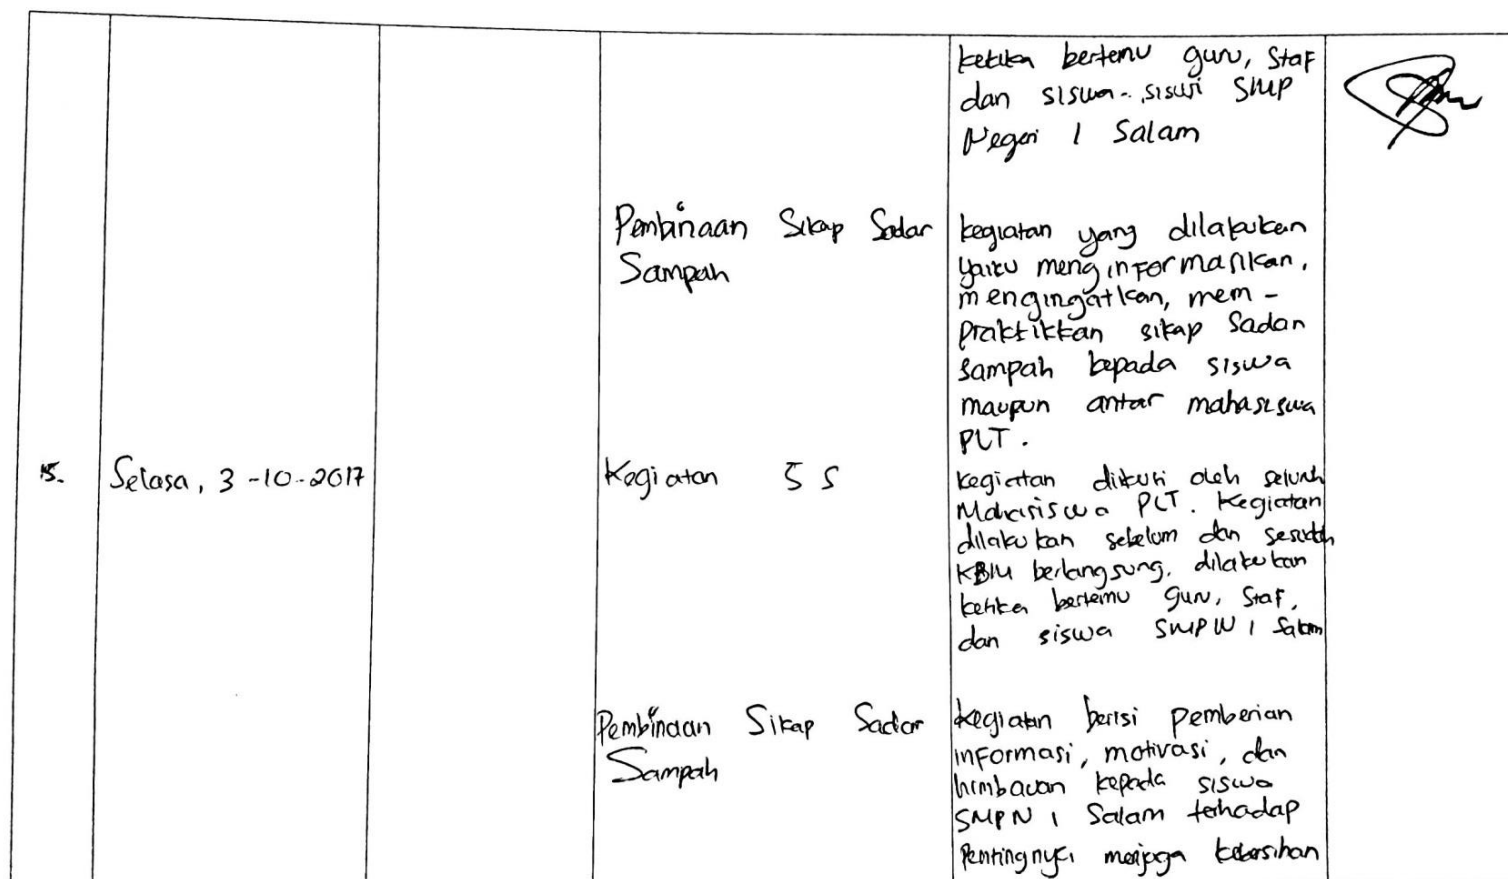 ketika bertemu guru, staf
dan siswa-siswi SMP
Negeri 1 Salam
Pembinaan Sikap Sadar
Sampah
kegiatan yang dilakukan
yaitu menginformasikan,
mengingatkan, mem-
praktikkan sikap sadar
sampah kepada siswa
maupun antar mahasiswa
PLT.
15.
Selasa, 3-10-2017
Kegiatan 5 S
kegiatan diikuti oleh seluruh
Mahasiswa PLT. Kegiatan
dilakukan sebelum dan sesudah
KBM berlangsung. dilakukan
ketika bertemu guru, staf,
dan siswa SMP N 1 Salam
Pembinaan Sikap Sadar
Sampah
kegiatan berisi pemberian
informasi, motivasi, dan
himbauan kepada siswa
SMP N 1 Salam terhadap
pentingnya menjaga kebersihan